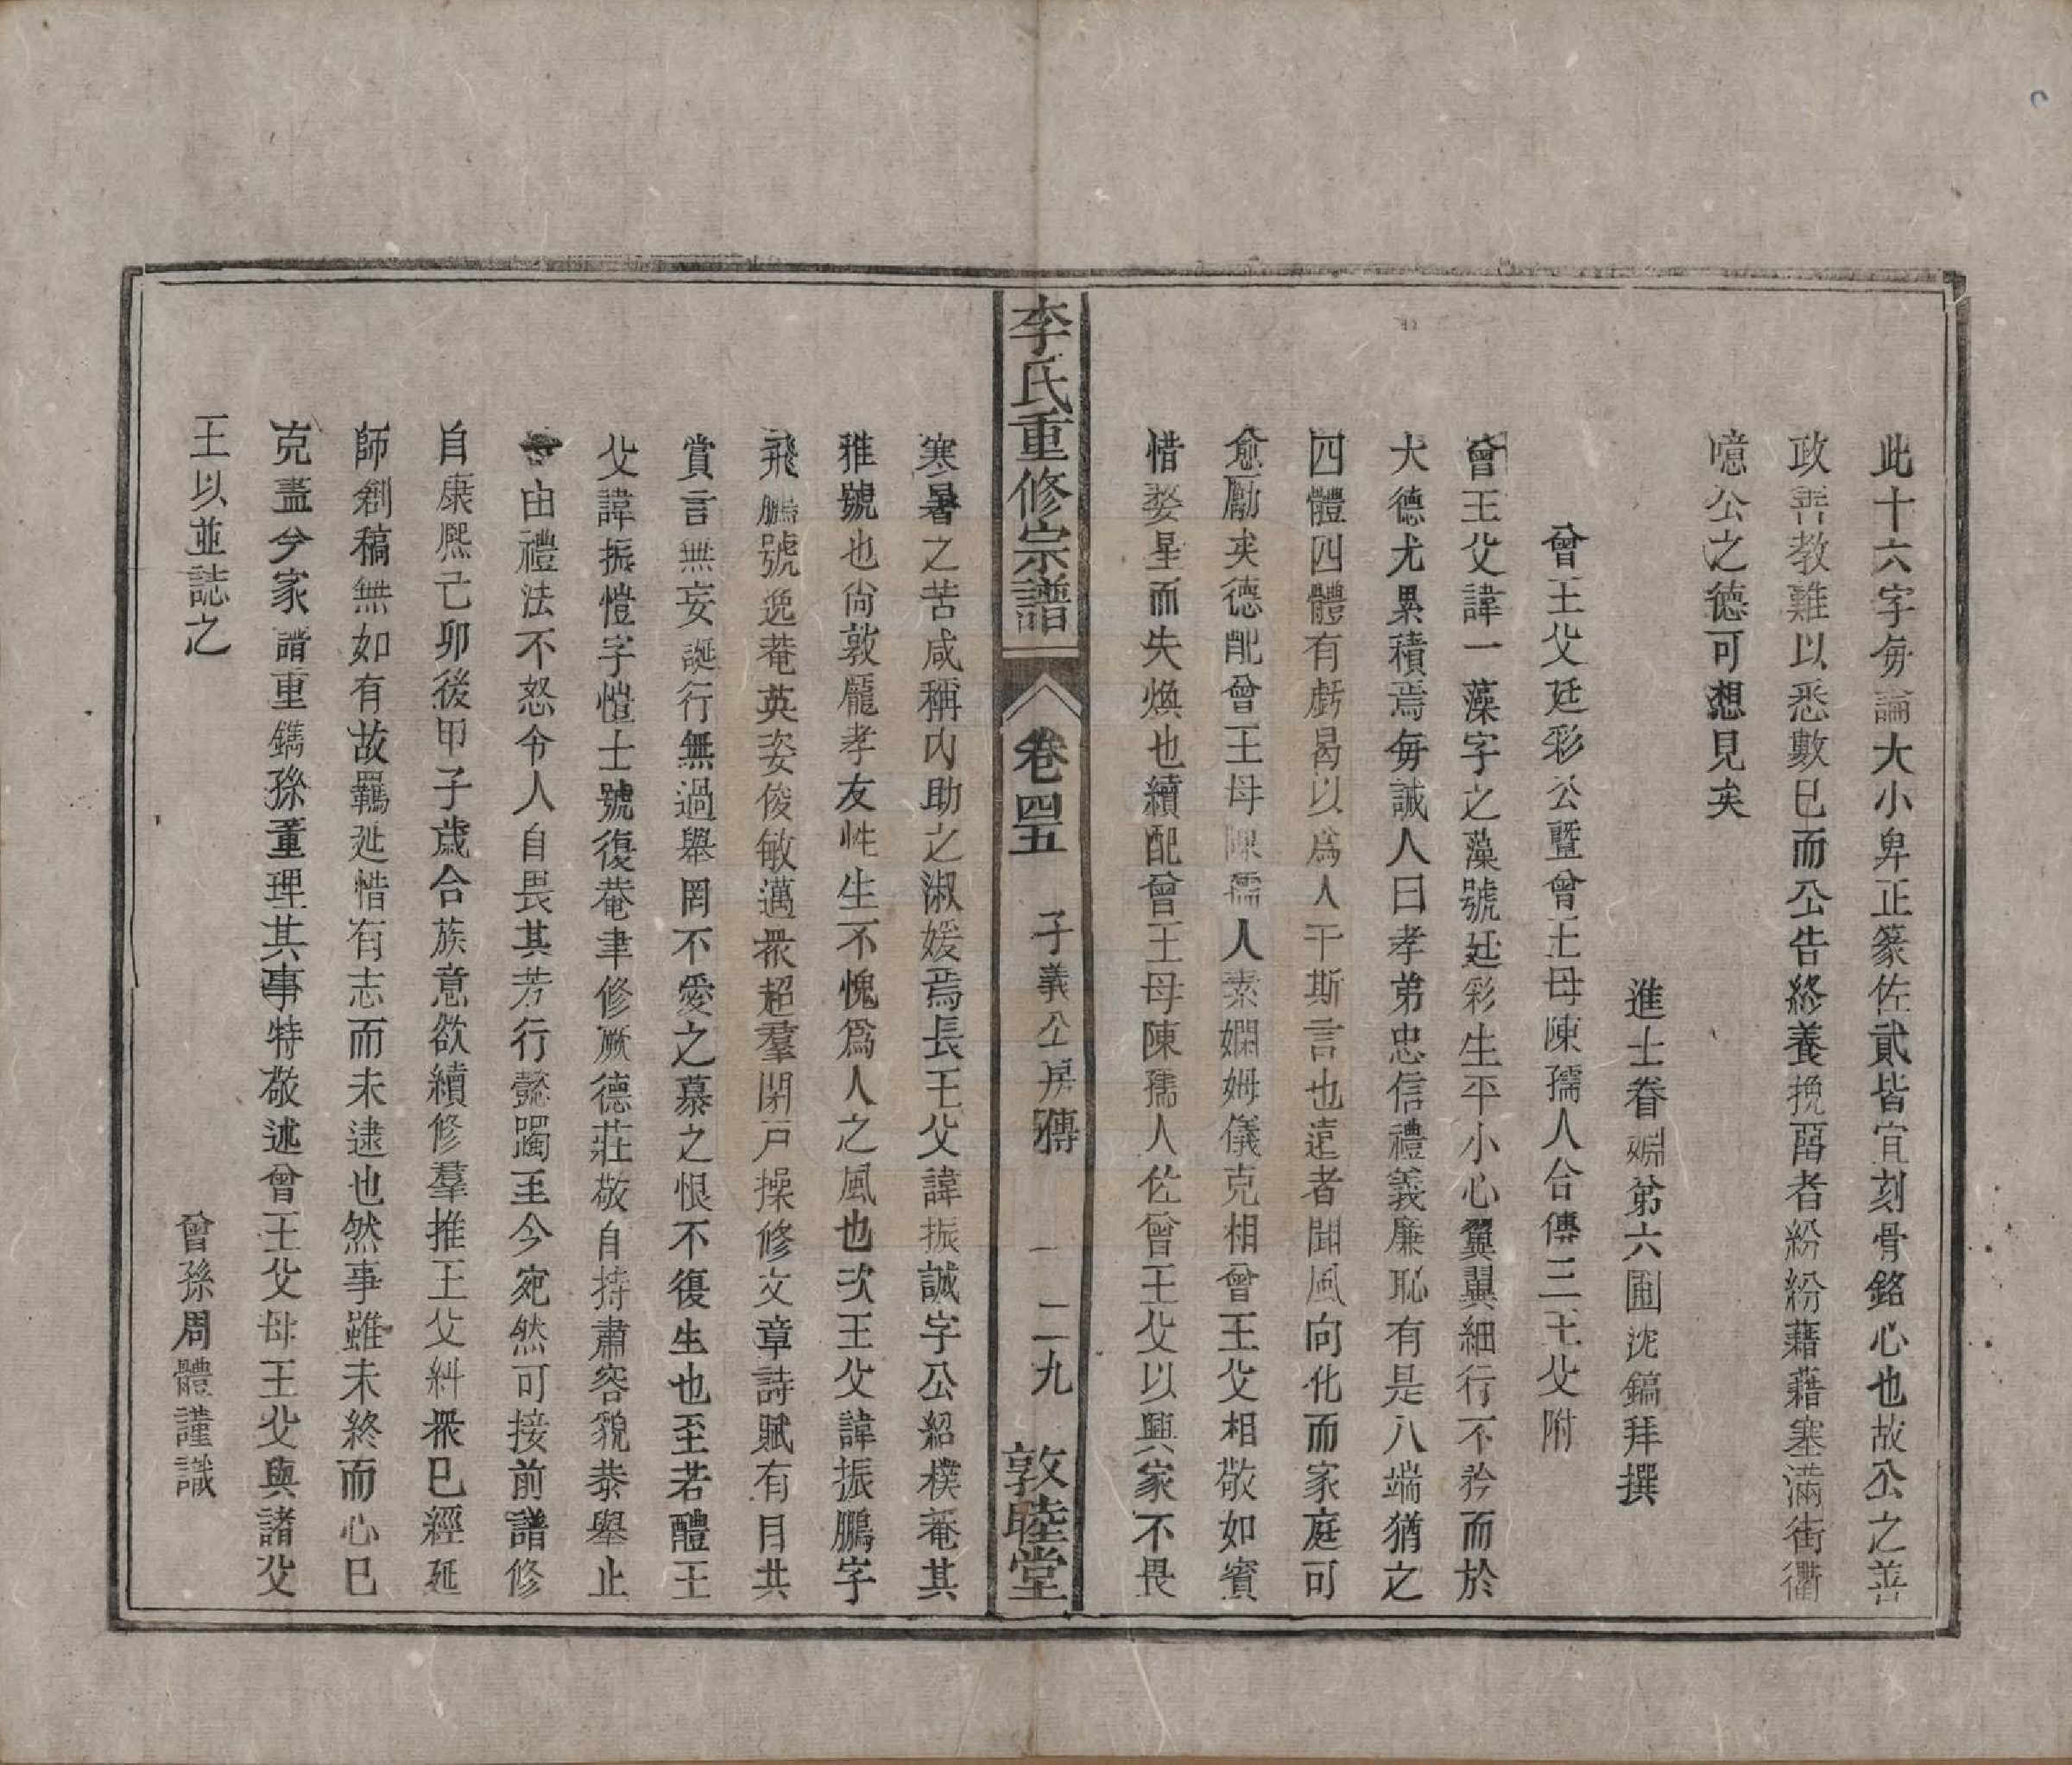 此十六字毋論大小卑正篆佐貳皆宜刻骨銘心也故公之善
政善教難以悉數已而公告終養挽留者紛紛藉藉塞滿街衢
噫公之德可想見矣
進士眷姻弟六圃沈鎬拜撰
曾王父廷彩公暨曾王母陳孺人合傳三王父附
曾王父諱一藻字之藻號廷彩生平小心翼翼細行不矜而於
大德尤累積焉每誡人曰孝弟忠信禮義廉恥有是八端猶之
四體四體有虧曷以為人干斯言也遠者聞風向化而家庭可
愈勵矣德配曾王母陳孺人素嫻姆儀克相曾王父相敬如賓
惜婺星而失煥也續配曾王母陳孺人佐曾王父以興家不畏
李氏重修宗譜 卷四五 子義公房傳 一 二九 敦睦堂
寒暑之苦咸稱內助之淑媛焉長王父諱振誠字公紹樸菴其
雅號也尙敦龐孝友性生不愧爲人之風也次王父諱振鵬字
飛鵬號逸菴英姿俊敏邁衆超羣閉戸操修文章詩賦有目共
賞言無妄誕行無過舉罔不愛之慕之恨不復生也至若醴王
父諱振愷字愷士號復菴聿修厥德莊敬自持肅容貌恭舉止
由禮法不怒令人自畏其芳行懿躅至今宛然可接前譜修
自康熙己卯後甲子歲合族意欲續修羣推王父糾衆已經延
師創稿無如有故羈延惜有志而未逮也然事雖未終而心已
克盡兮家譜重鐫孫董理其事特敬述曾王父母王父與諸父
王以並誌之
曾孫周體謹識